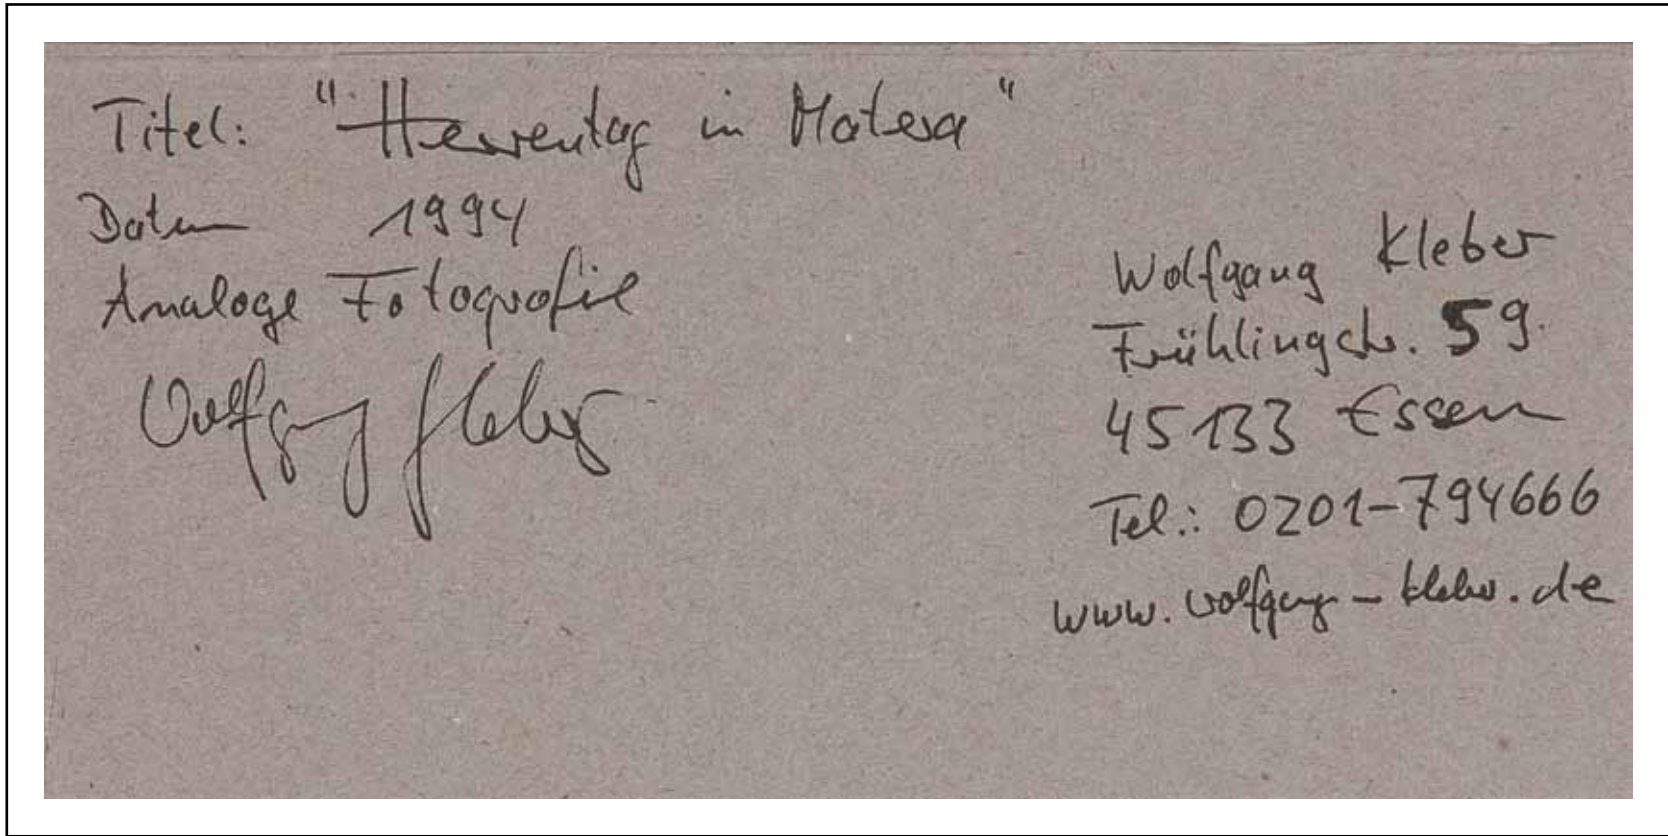 Titel: "Herrentag in Matera"
Datum 1994
Analoge Fotografie
Wolfgang Kleber
Wolfgang Kleber
Frühlingstr. 59.
45133 Essen
Tel.: 0201-794666
www.wolfgang-kleber.de